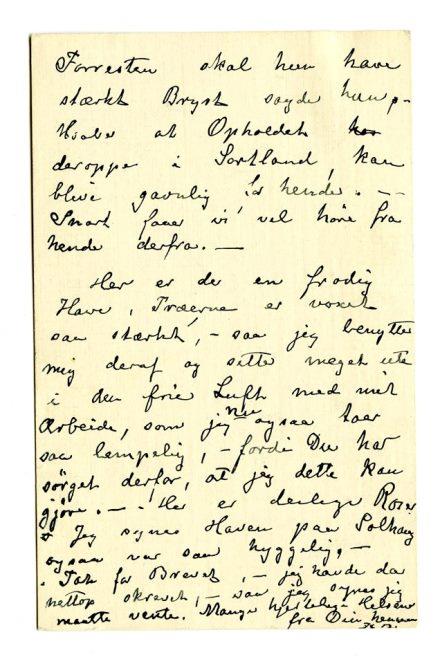 Forresten skal hun have
stærkt Bryst sagde hun,-
Haaber at Opholdet
deroppe i Sortland, kan
blive gavnlig for hende. —
Snart faaer vi vel høre fra
hende derfra. —
Her er der en frodig
Have, Træerne er voxet
saa stærkt, - saa jeg benytter
mig deraf og sitte meget ute
i den frie Luft med mit
Arbeide, som jeg nu ogsaa taar
saa lempelig, - fordi Du har
sørget derfor, at jeg dette kan
gjøre. - - Her er deilige Roser
Jeg synes Haven paa Solhaug
ogsaa var saa hyggelig, -
Tak for Brevet, - jeg havde da
nettop skrevet, - saa jeg synes jeg
maatte vente. Mange hjertelige Hilsener
fra Din